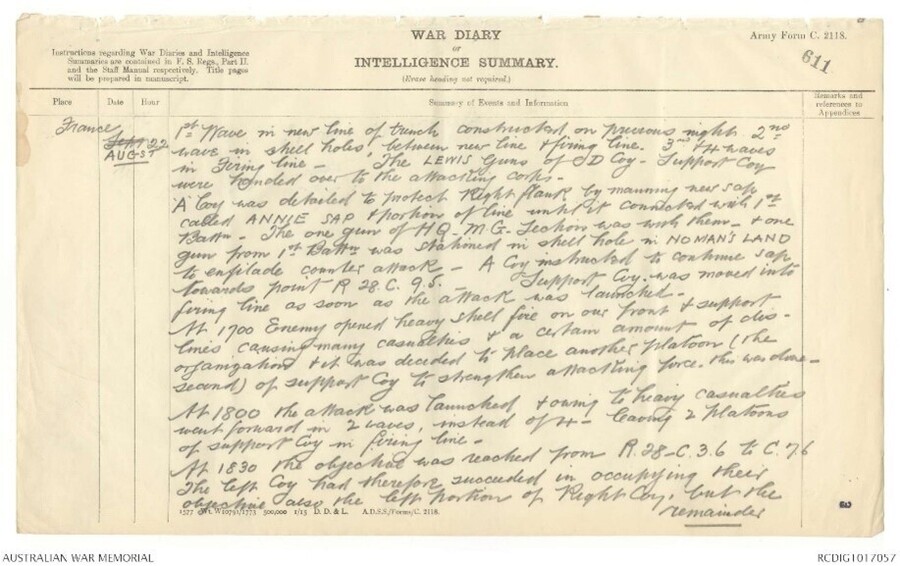 WAR DIARY
or
INTELLIGENCE SUMMARY.
(Erase heading not required.)
Army Form C. 2118.
611
Instructions regarding War Diaries and Intelligence
Summaries are contained in F. S. Regs., Part II.
and the Staff Manual respectively. Title pages
will be prepared in manuscript.
Place
Date
Hour
Summary of Events and Information
Remarks and
references to
Appendices
France
Sept 22
AUGST
1st Wave in new line of trench constructed on previous night 2nd
wave in shell holes, between new line & firing line. 3rd & 4 waves
in Firing line - The LEWIS Guns of D Coy - Support Coy
were handed over to the attacking coys.
A Coy was detailed to protect Right flank by manning new sap
called ANNIE SAP & portion of line until it connected with 1st
Battn - The one gun of HQ. M.G. Section was with them - & one
gun from 1st Battn was stationed in shell hole in NOMAN'S LAND
to enfilade counter attack - A Coy instructed to continue sap
towards point R 28. C. 9.5. - Support Coy. was moved into
firing line as soon as the attack was launched -
At 1700 Enemy opened heavy shell fire on our front & support
lines causing many casualties & a certain amount of dis-
organization & it was decided to place another platoon (the
second) of support Coy to strengthen attacking force. this was done -
At 1800 the attack was launched & owing to heavy casualties
went forward in 2 waves, instead of 4 - leaving 2 Platoons
of support Coy in firing line -
At 1830 the objective was reached from R.28-C.3.6 to C.7.6
The left Coy had therefore succeeded in occupying their
objective also the left portion of Right Coy, but the
remainder
1577 Wt. W10791/1773 500,000 1/15 D. D. & L. A.D.S.S./Forms/C. 2118.
AUSTRALIAN WAR MEMORIAL
RCDIG1017057